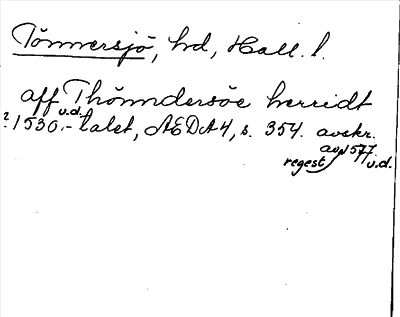 Tönnersjö, hd, Hall. l.
aff Thönndersöe herridt
? u.d. 1530.-talet, AEDA4, s. 354. avskr.
regest av 1577 u.d.